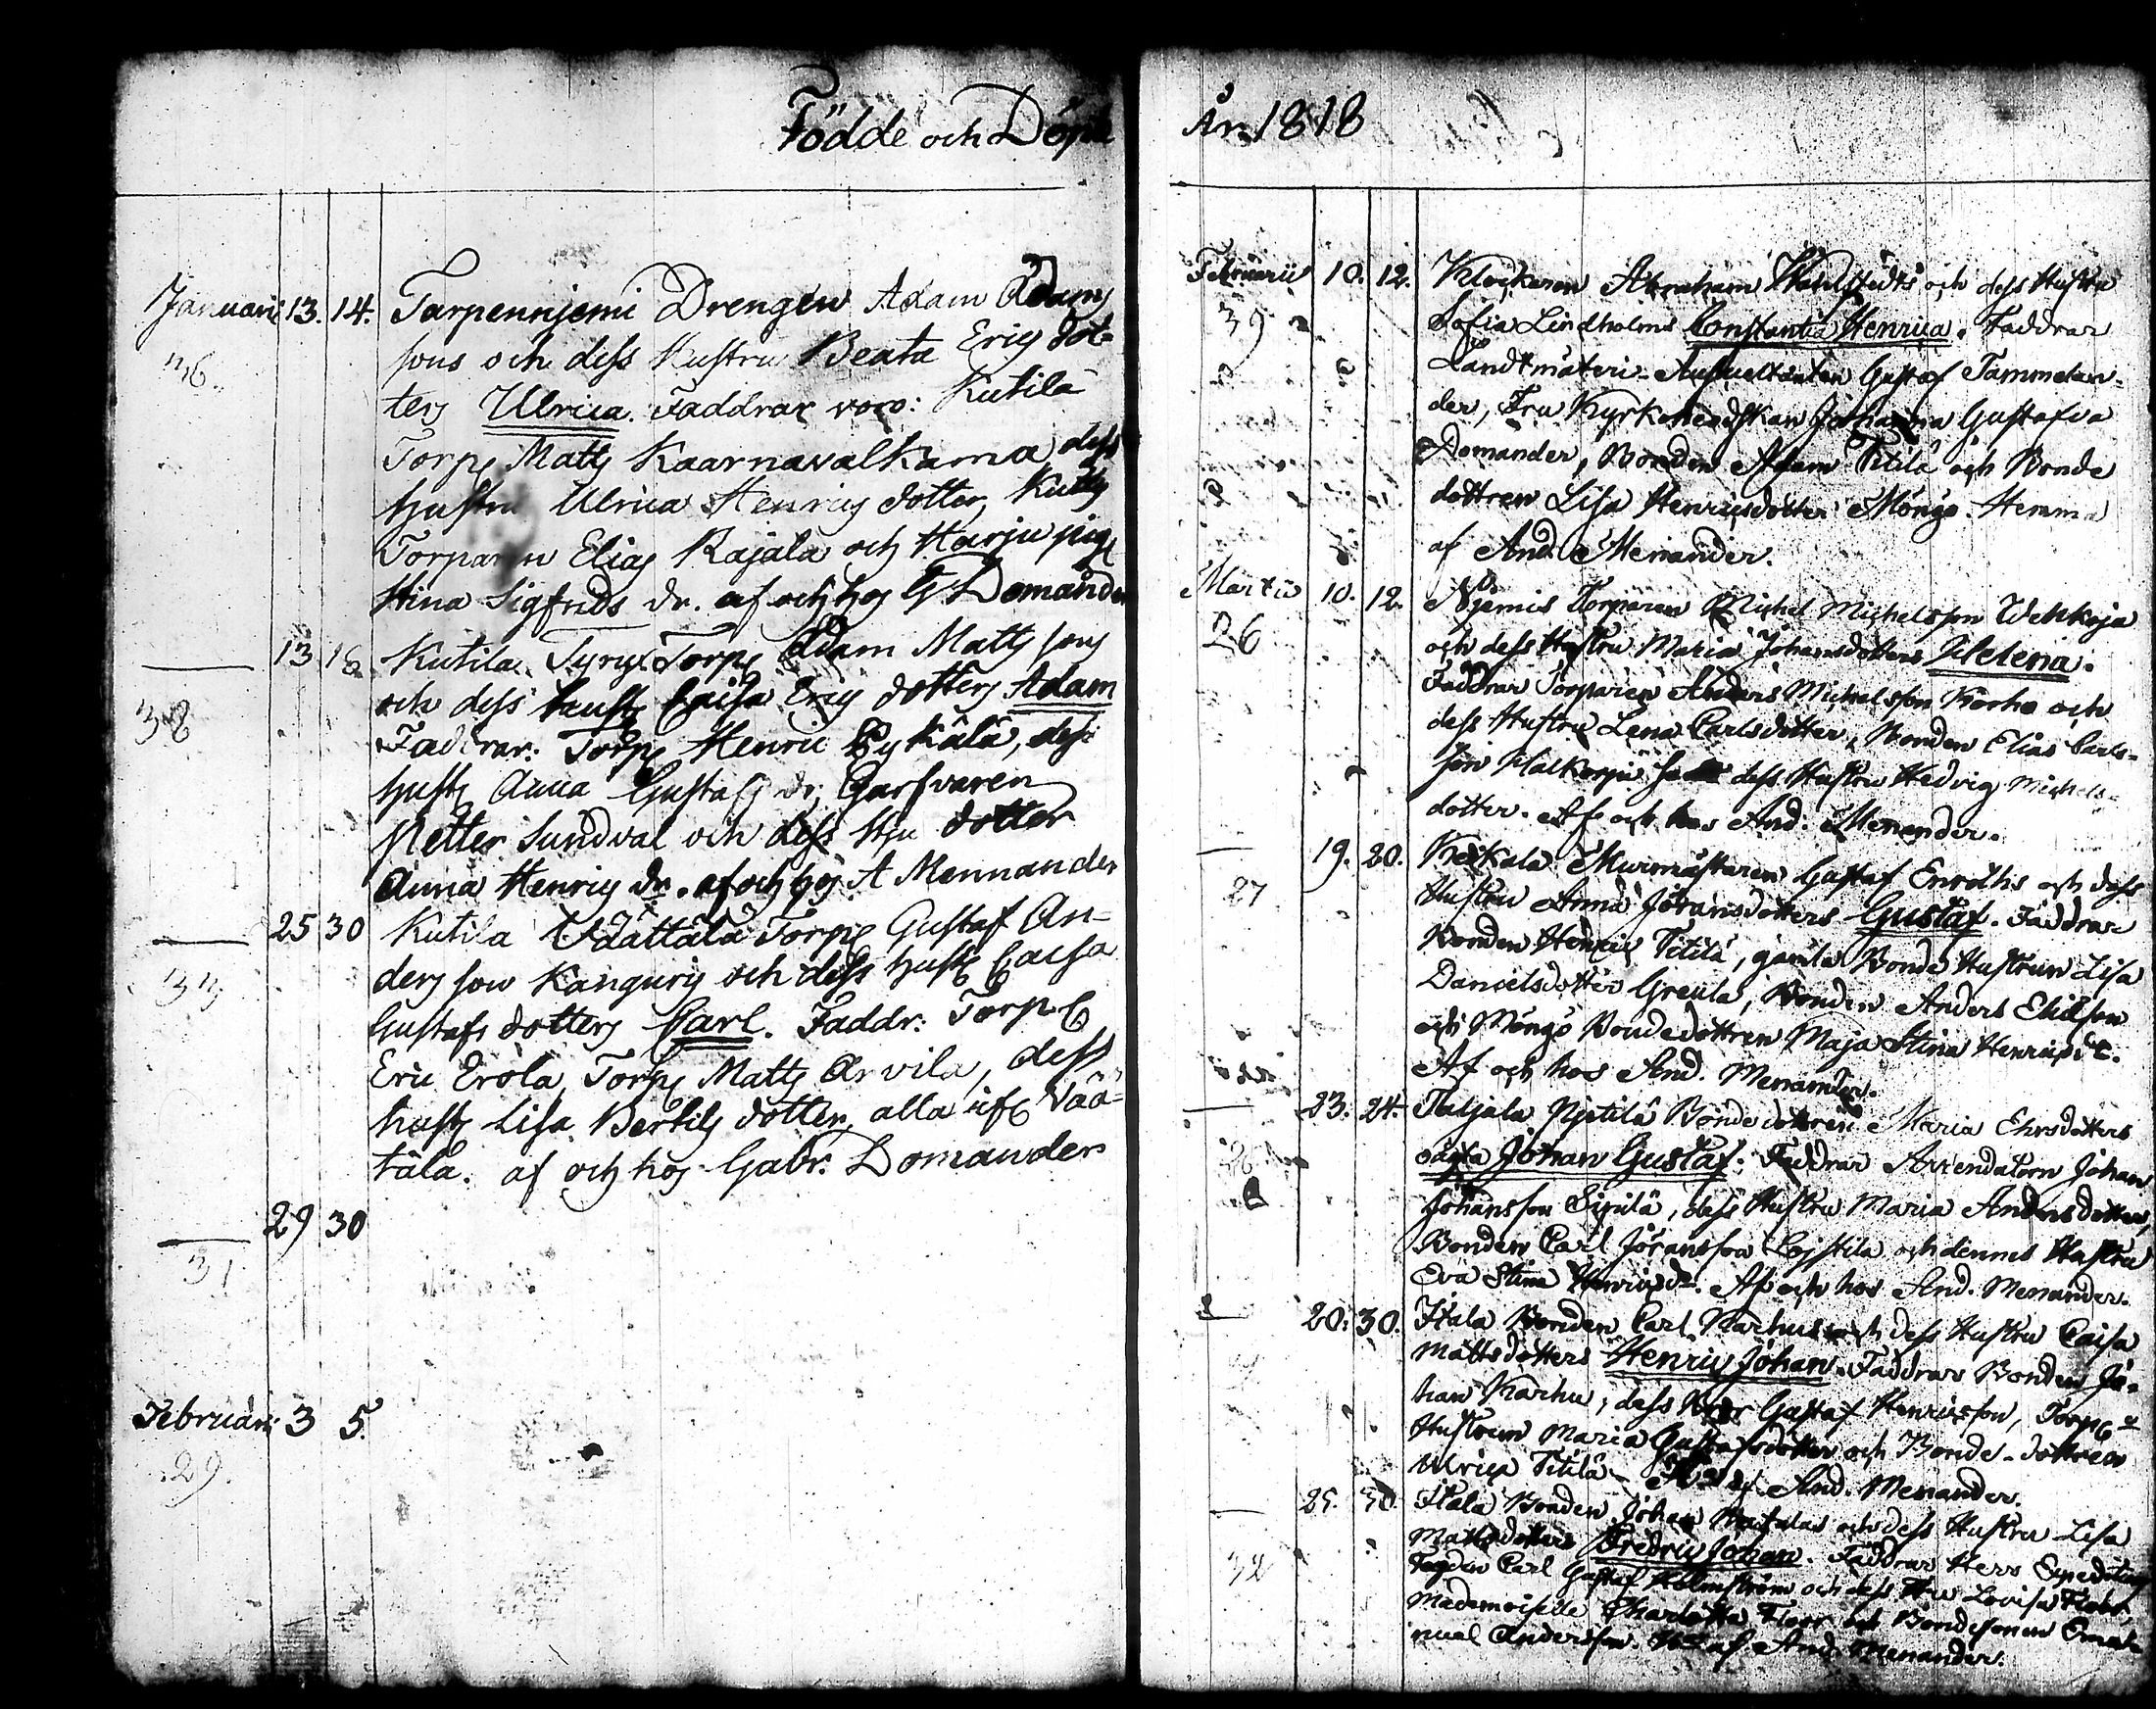 Födde och Döpte
Januarii 13. 14. Tarpennjemi Drengen Adam Adams
36. sons och dess Hustru Beata Erics dot-
ters Ulrica. Faddrar voro: Kutila
Torp. Matts Kaarnavalkama dess
hustru Ulrica Henrics dotter, Kutila
Torparen Elias Rajala och Harju pig.
Stina Sigfrids dr. af och hos G Domander
13 18 Kutila Torp. Adam Matts sons
38 och dess hust. Caisa Erics dotters Adam
Faddrar: Torp. Henric Eykälä, dess
hust. Anna Gustafs dr, Garfvaren
Petter Sundval och dess Hu dotter
Anna Henrics dr. af och hos A Mennander
25 30 Kutila Wäättälä Torp. Gustaf An-
ders son Kanguris och dess hust. Caisa
Gustafs dotters Carl. Faddr: Torp.
Eric Erola, Torp. Matts Arvila, dess
hust. Lisa Bertils dotter, alla ifr. Vää-
tälä. af och hos Gabr. Domander
29 30
31
Februarii 3 5.
29.
År 1818
Februarii 10. 12. Klockaren Abraham Wahlstedts och dess Hustru
39 Sofia Lindholms Constantia Henrica. Faddrar
Landtmäteri-Auscultanten Gustaf Tammelan-
der, Fru Kyrkoherdskan Johanna Gustafva
Domander, Bonden Adam Titilä och Bonde
dottren Lisa Henricsdotter Möngö. Hemma
af And. Menander.
Martii 10. 12. Njemis Torparen Michel Michelsson Wehkoja
26 och dess Hustru Maria Johansdotters Helena.
Faddrar Torparen Anders Michelsson Korho och
dess Hustru Lena Carlsdotter, Bonden Elias Carls-
son dess Hustru Hedvig Michels-
dotter. Af och hos And. Menander.
19. 20. Keikala Murmästaren Gustaf Enroths och dess
27 Hustru Anna Göransdotters Gustaf. Faddrar
Bonden Henric Titilä, gamla Bonde Hustrun Lisa
Danielsdotter Greula, Bonden Anders Eliasson
och Möngö Bondedottren Maja Stina Henricsdr.
Af och hos And. Menander.
23. 24. Taljala Pjetilä Bondedottren Maria Ehrsdotters
oägta Johan Gustaf. Faddrar Arrendatorn Johan
Johansson Sipilä, dess Hustru Maria Andersdotter,
Bonden Carl Göransson Lojstila och dennes Hustru
Eva Stina Henricsdr. Af och hos And. Menander.
20. 30. Itala Bonden Carl Karhus och dess Hustru Caisa
Mattsdotters Henric Johan. Faddrar Bonden Jo-
han Karhu, dess Bror Gustaf Henricsson, Torp.
Hustrun Maria Gustafsdotter och Bonde-dottren
Ulrica Titilä. af And. Menander.
25. 30. Itala Bonden Johan och dess Hustru Lisa
32 Mattsdotters Fredric Johan. Faddrar Herr Expeditions
Fogden Carl Gustaf Holmström och dess Fru Lovisa
Mademoiselle Charlotta och Bondesonen Eman
nuel Andersson. af And. Menander.